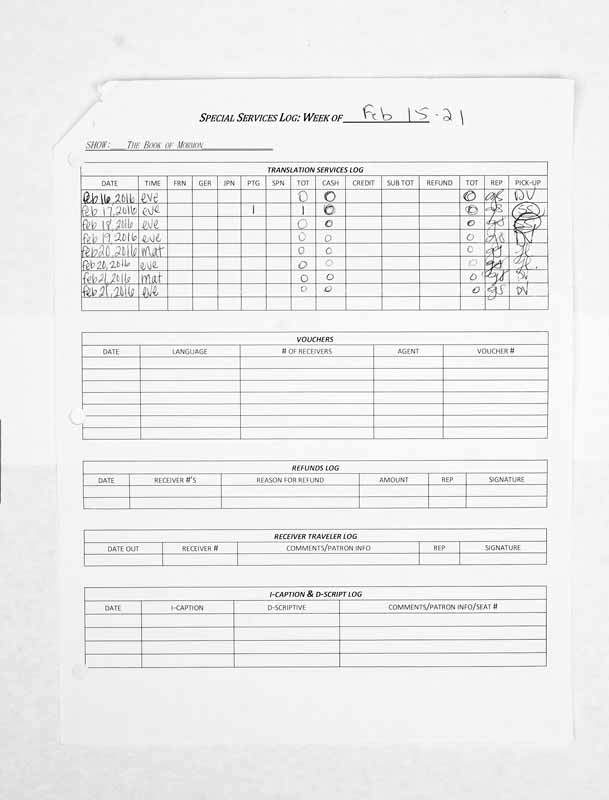 SPECIAL SERVICES LOG: WEEK OF Feb 15-21
SHOW: THE BOOK OF MORMON
TRANSLATION SERVICES LOG
DATE TIME FRN GER JPN PTG SPN TOT CASH CREDIT SUB TOT REFUND TOT REP PICK-UP
Feb 16, 2016 eve 0 0 0 gs DV
Feb 17, 2016 eve 1 1 0 0 gs SS
Feb 18, 2016 eve 0 0 0 gs
Feb 19, 2016 eve 0 0 0 gs
Feb 20, 2016 mat 0 0 0 gs
Feb 20, 2016 eve 0 0 0 gs
Feb 21, 2016 mat 0 0 0 gs
Feb 21, 2016 eve 0 0 0 gs DV
VOUCHERS
DATE LANGUAGE # OF RECEIVERS AGENT VOUCHER #
REFUNDS LOG
DATE RECEIVER #'S REASON FOR REFUND AMOUNT REP SIGNATURE
RECEIVER TRAVELER LOG
DATE OUT RECEIVER # COMMENTS/PATRON INFO REP SIGNATURE
I-CAPTION & D-SCRIPT LOG
DATE I-CAPTION D-SCRIPTIVE COMMENTS/PATRON INFO/SEAT #